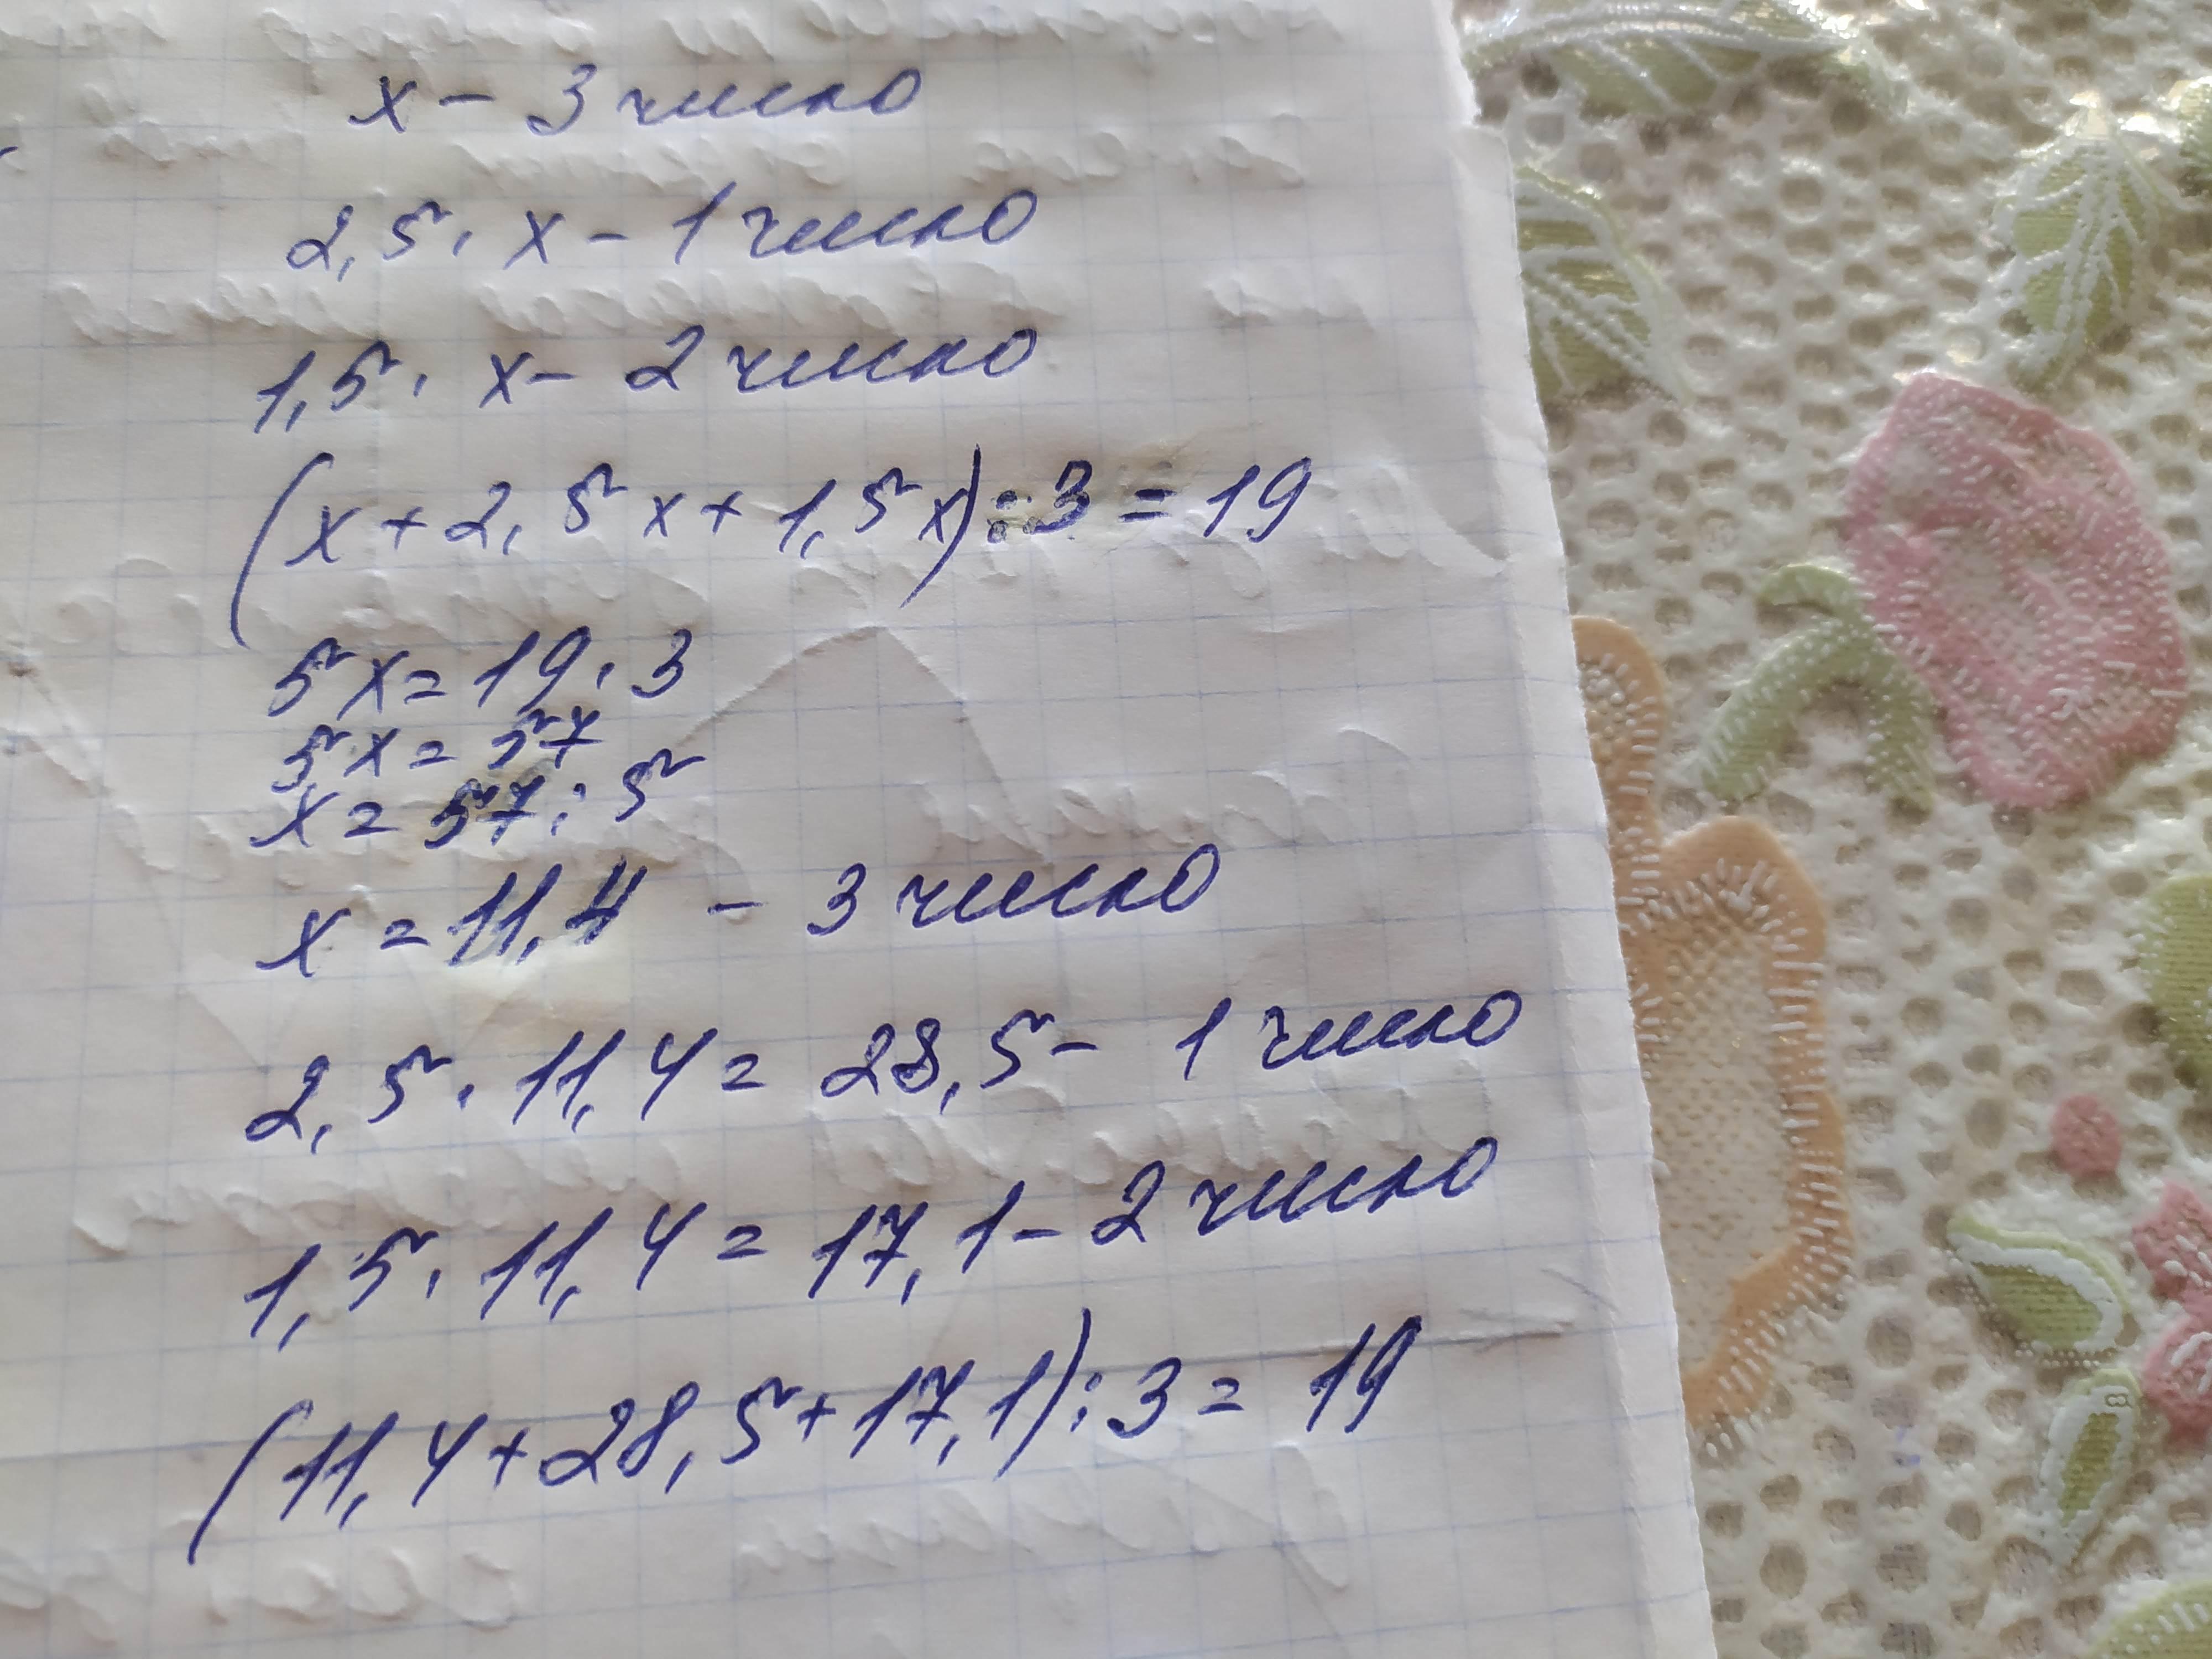 х - 3 число
2,5 · х - 1 число
1,5 · х - 2 число
(х + 2,5х + 1,5х) : 3 = 19
5х = 19 · 3
5х = 57
х = 57 : 5
х = 11,4 - 3 число
2,5 · 11,4 = 28,5 - 1 число
1,5 · 11,4 = 17,1 - 2 число
(11,4 + 28,5 + 17,1) : 3 = 19